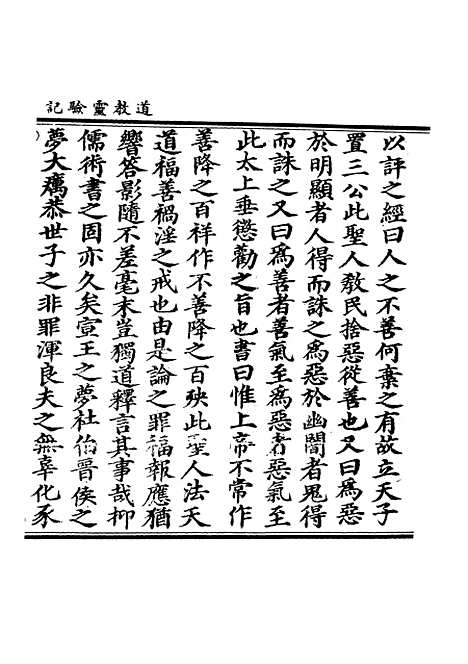 道教靈驗記
以評之經曰人之不善何棄之有故立天子
置三公此聖人教民捨惡從善也又曰為惡
於明顯者人得而誅之為惡於幽闇者鬼得
而誅之又曰為善者善氣至為惡者惡氣至
此太上垂懲勸之旨也書曰惟上帝不常作
善降之百祥作不善降之百殃此聖人法天
道福善禍淫之戒也由是論之罪福報應猶
響答影隨不差毫末豈獨道釋言其事哉抑
儒術書之固亦久矣宣王之夢杜伯晉侯之
夢大癘恭世子之非罪渾良夫之無辜化豕